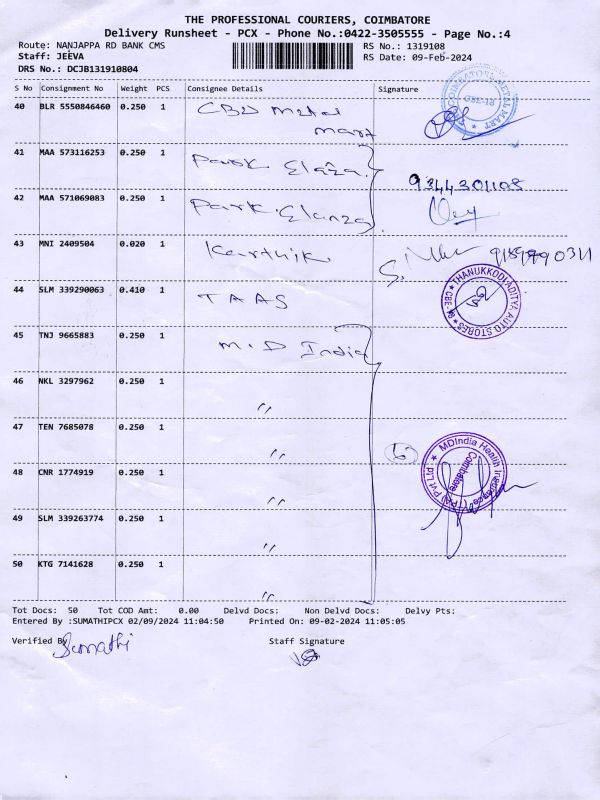 THE PROFESSIONAL COURIERS, COIMBATORE
Delivery Runsheet - PCX - Phone No.:0422-3505555 - Page No.:4
Route: NANJAPPA RD BANK CMS RS No.: 1319108
Staff: JEEVA RS Date: 09-Feb-2024
DRS No.: DCJB131910804
S No Consignment No Weight PCS Consignee Details Signature
40 BLR 5550846460 0.250 1 CBD Metal
mart
41 MAA 573116253 0.250 1 Park Elanza
9344301108
42 MAA 571069083 0.250 1 Park Elanza
43 MNI 2409504 0.020 1 Karthik
44 SLM 339290063 0.410 1 TAAS
THANUKKODI ADITYA AUTO STORES
45 TNJ 9665883 0.250 1 M.D India
46 NKL 3297962 0.250 1 〃
47 TEN 7685078 0.250 1 〃 6
MDIndia Health Insurance (TPA) Pvt Ltd
Coimbatore
48 CNR 1774919 0.250 1 〃
49 SLM 339263774 0.250 1 〃
50 KTG 7141628 0.250 1 〃
Tot Docs: 50 Tot COD Amt: 0.00 Delvd Docs: Non Delvd Docs: Delvy Pts:
Entered By :SUMATHIPCX 02/09/2024 11:04:50 Printed On: 09-02-2024 11:05:05
Verified By Sumathi Staff Signature